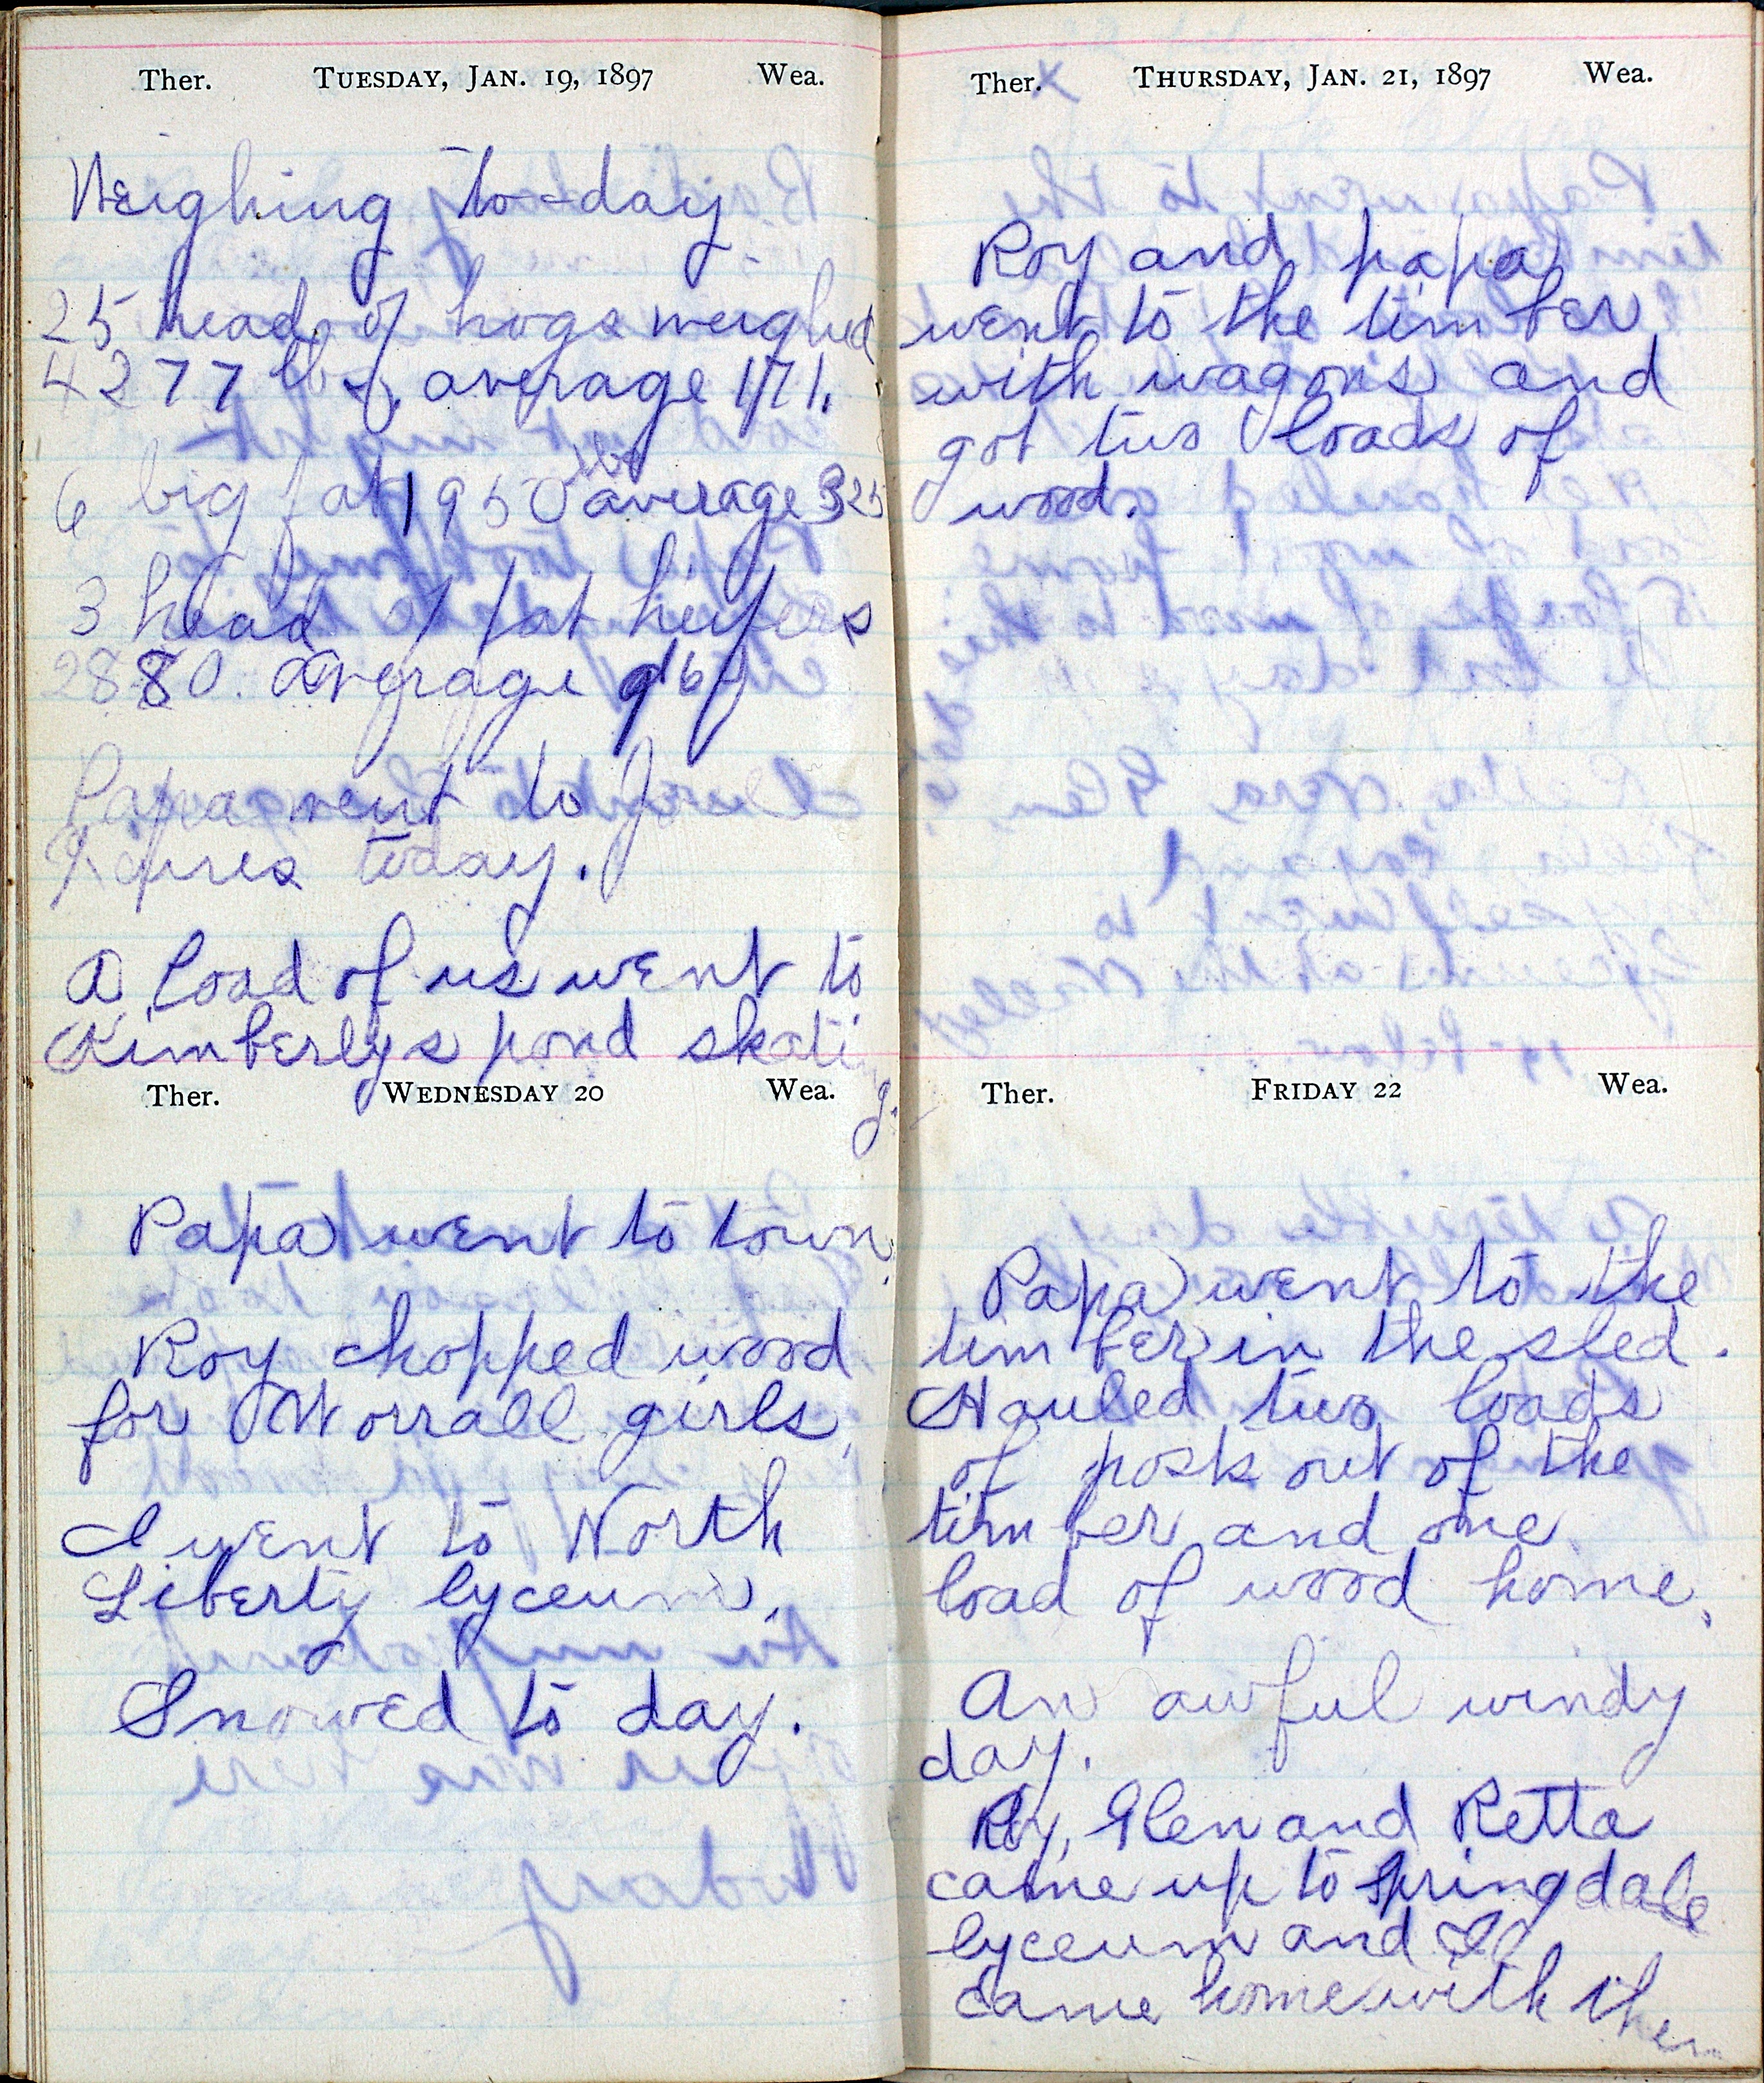 Ther. TUESDAY, JAN. 19, 1897 Wea.
Weighing to-day
25 head of hogs weighed
4277 lbs, average 171.
6 big fat 1950 lbs average 325
3 head of fat heifers
2880. average 960
Papa went to Joel
today.
A load of us went to
Kimberlys pond skating.
Ther. WEDNESDAY 20 Wea.
Papa went to town.
Roy chopped wood
for Worrall girls.
I went to North
Liberty lyceum.
Snowed to day.
Ther. THURSDAY, JAN. 21, 1897 Wea.
Roy and papa
went to the timber
with wagons and
got two loads of
wood.
Ther. FRIDAY 22 Wea.
Papa went to the
timber in the sled.
Hauled two loads
of posts out of the
timber and one
load of wood home.
An awful windy
day.
Roy, Glen and Retta
came up to Springdale
lyceum and I
came home with them